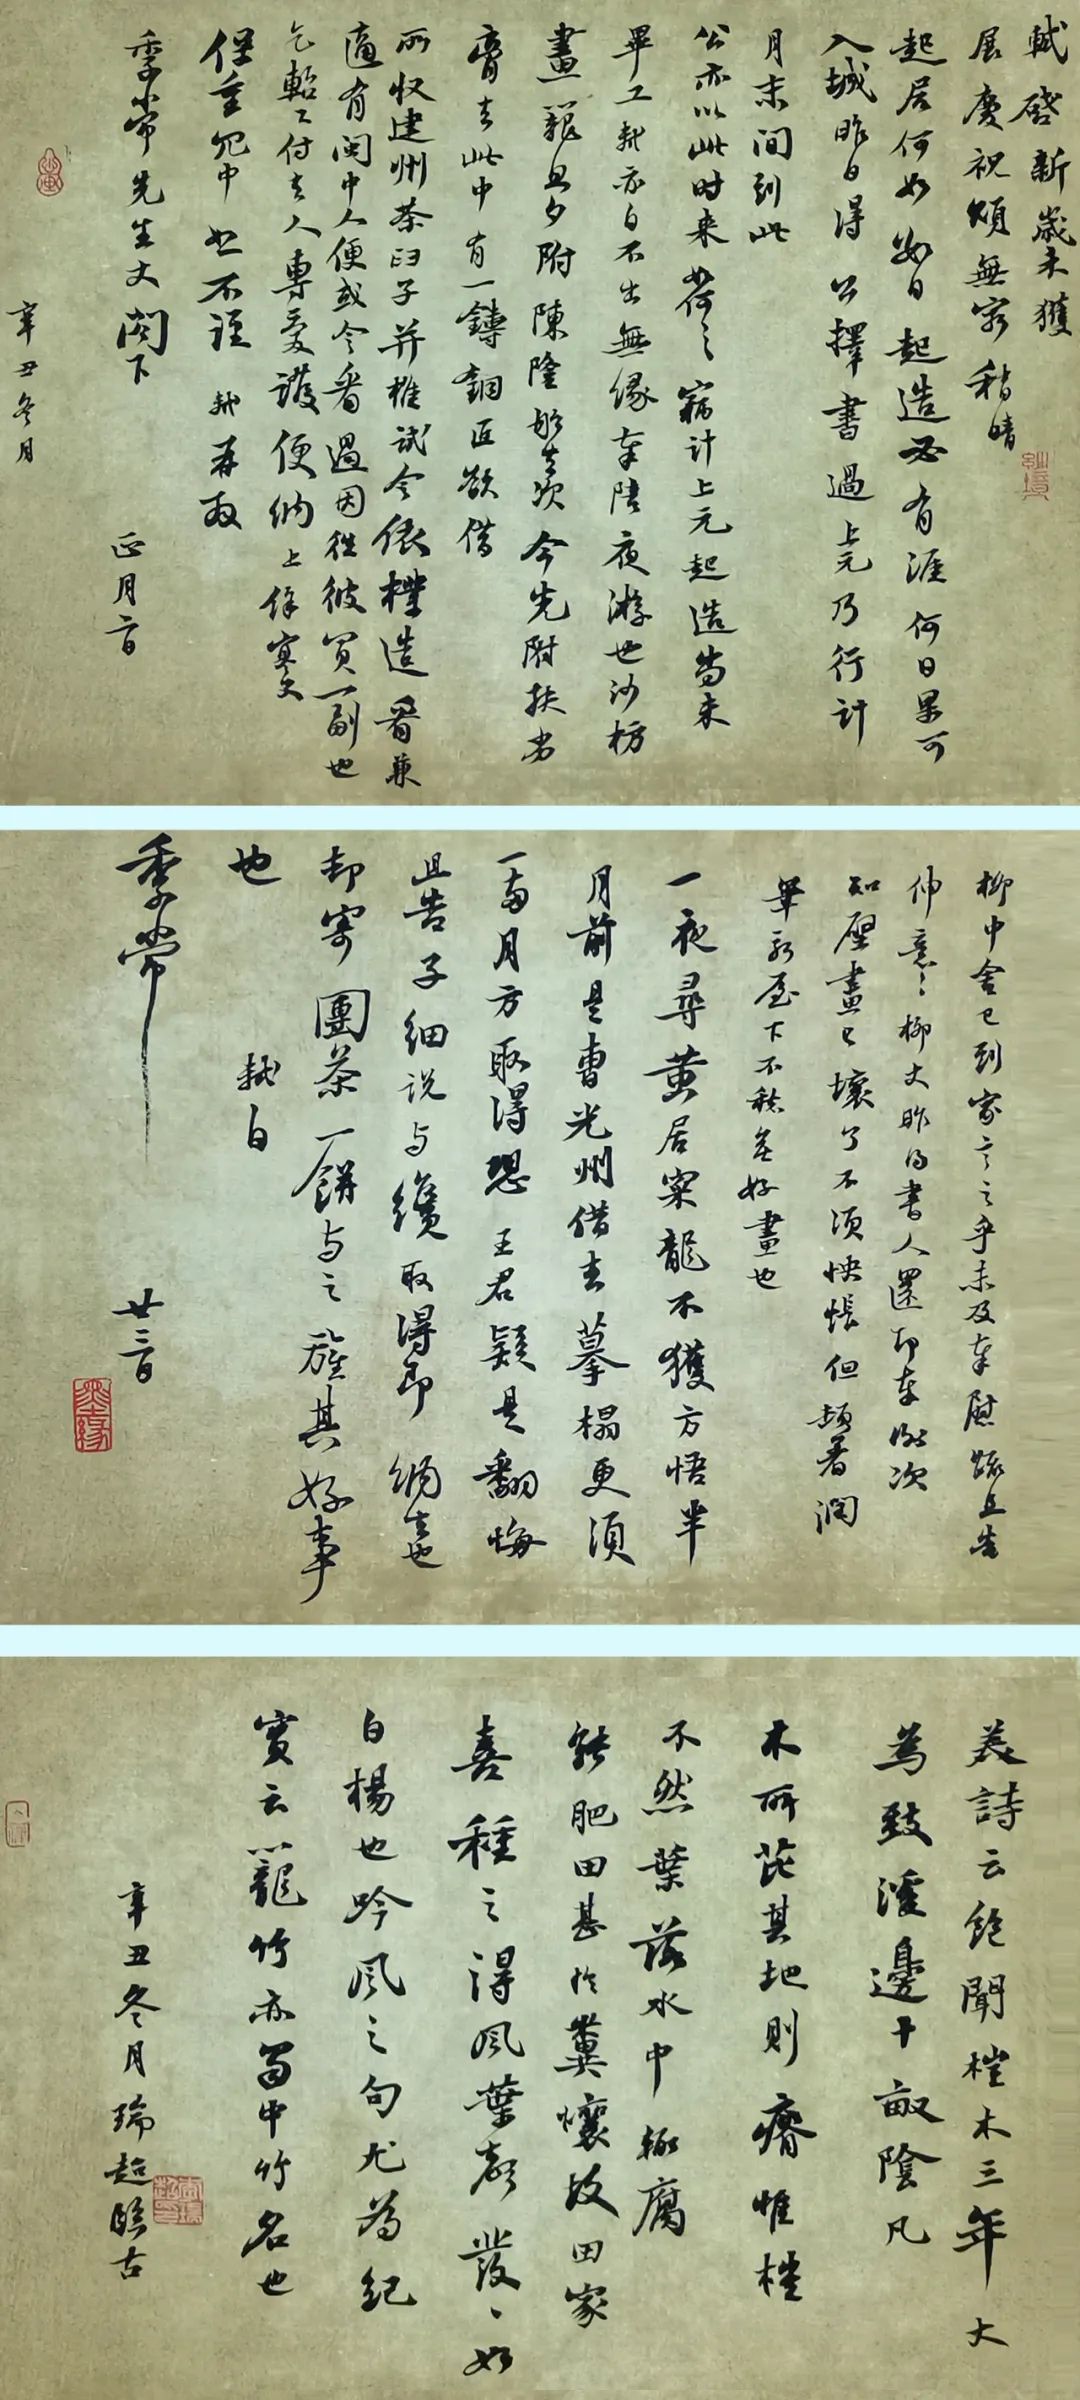 軾啓新歲未獲
展慶祝頌無窮稍晴
起居何如數日起造必有涯何日果可
入城昨日得公擇書過上元乃行計
月末間到此
公亦以此時來如何何竊計上元起造尚未
畢工軾亦自不出無緣奉陪夜遊也沙枋
畫籠旦夕附陳隆船去次今先附扶劣
膏去此中有一鑄銅匠欲借
所收建州茶臼子并椎試令依樣造看兼
適有閩中人便或令看過因往彼買一副也
乞暫付去人專愛護便納上餘寒更
保重冗中恕不謹軾再拜
季常先生丈閣下
正月二日
辛丑冬月
柳中舍已到家言之乎未及奉慰疏且告
伸意意柳丈昨得書人還即奉謝次
知壁畫已壞了不須怏悵但頓著潤
筆新屋下不愁無好畫也
一夜尋黃居寀龍不獲方悟半
月前是曹光州借去摹榻更須
一兩月方取得恐王君疑是翻悔
且告子細說與纔取得即納去也
卻寄團茶一餅與之旌其好事
也
軾白
季常
廿三日
美詩云飽聞榿木三年大
為致溪邊十畝陰凡
木所芘其地則瘠惟榿
不然葉落水中輒腐
能肥田甚於糞壤故田家
喜種之得風葉聲發發如
白楊也吟風之句尤為紀
實云籠竹亦蜀中竹名也
辛丑冬月瑞超臨古
墨緣